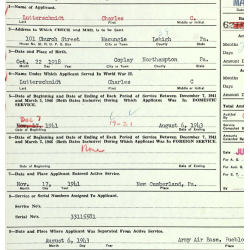 1. Name of Applicant.
Lotterschmidt Charles C.
Last First Middle or Initial
2. Address to Which CHECK and MAIL is to be Sent.
101 Church Street Macungie Lehigh Pa.
House No. City or Town County State
3. Date and Place of Birth.
Oct. 22 1918 Copley Northampton Pa.
Month Day Year City or Town County State
4. Name Under Which Applicant Served In World War II.
Lotterschmidt Charles C
Last First Middle or Initial
5. Date of Beginning and Date of Ending of Each Period of Service Between December 7, 1941
and March 2, 1946 (Both Dates Inclusive) During Which Applicant Was In DOMESTIC
SERVICE.
Dec 7
Nov. 17, 1941 19-21 August 6, 1943
6. Date of Beginning and Date of Ending of Each Period of Service Between December 7, 1941
and March 2, 1946 (Both Dates Inclusive) During Which Applicant Was In FOREIGN SERVICE.
None
7. Date and Place Applicant Entered Active Service.
Nov. 17, 1941 New Cumberland, Pa.
Month Day Year Place
8. Service or Serial Numbers Assigned To Applicant.
Service Nos.
Serial Nos.
9. Date and Place Where Applicant Was Separated From Active Service.
August 6, 1943 Army Air Base, Pueblo